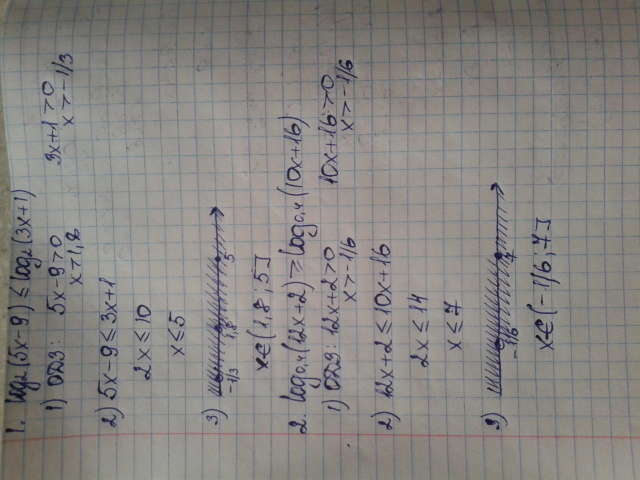 1. log₂(5x-9) ≤ log₂(3x+1)
1) ОДЗ: 5x-9>0 3x+1>0
x>1,8 x>-1/3
2) 5x-9 ≤ 3x+1
2x ≤ 10
x ≤ 5
3)
-1/3 1,8 5
x∈(1,8 ; 5]
2. log₀,₄(12x+2) ≥ log₀,₄(10x+16)
1) ОДЗ: 12x+2>0 10x+16>0
x>-1/6 x>-1/6
2) 12x+2 ≤ 10x+16
2x ≤ 14
x ≤ 7
3)
-1/6 7
x∈(-1/6 ; 7]